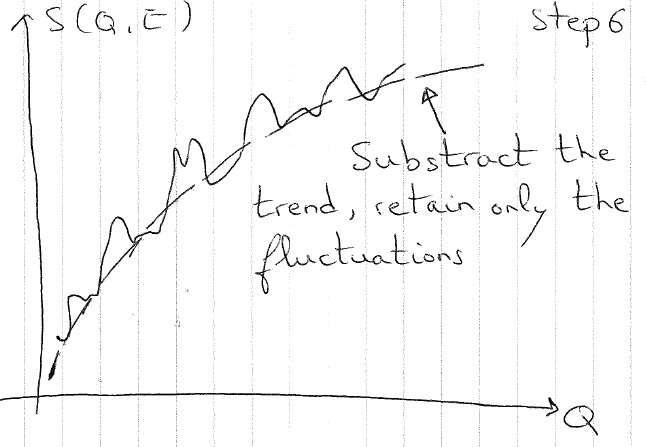 S(Q,E)
Step 6
Substract the
trend, retain only the
fluctuations
Q